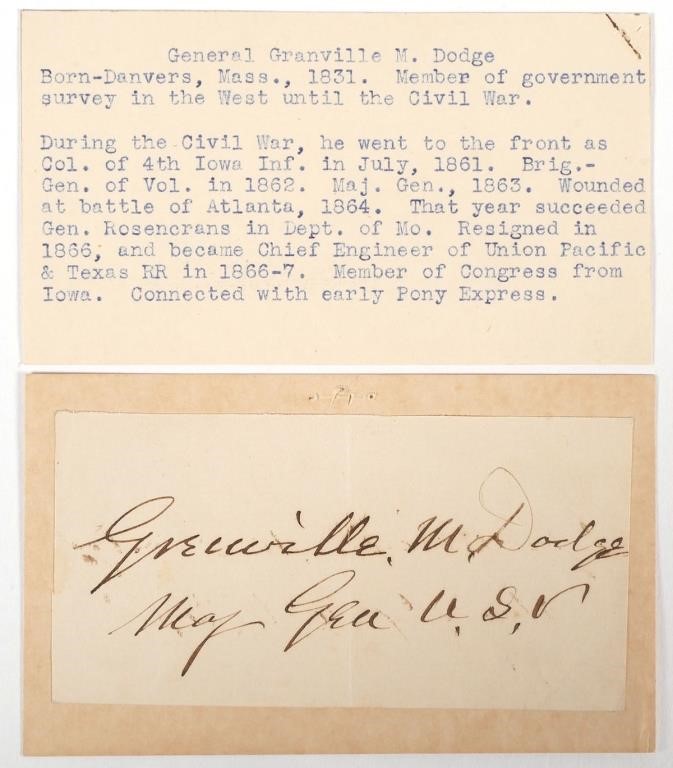 General Granville M. Dodge
Born-Danvers, Mass., 1831. Member of government
survey in the West until the Civil War.
During the Civil War, he went to the front as
Col. of 4th Iowa Inf. in July, 1861. Brig.-
Gen. of Vol. in 1862. Maj. Gen., 1863. Wounded
at battle of Atlanta, 1864. That year succeeded
Gen. Rosencrans in Dept. of Mo. Resigned in
1866, and became Chief Engineer of Union Pacific
& Texas RR in 1866-7. Member of Congress from
Iowa. Connected with early Pony Express.
Grenville. M. Dodge
Maj Gen U. S. V